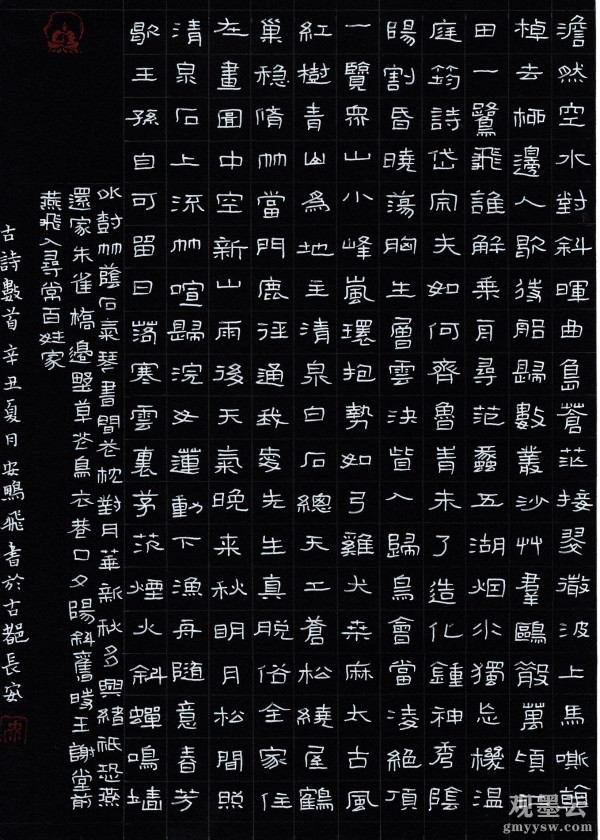 澹然空水對斜暉曲島蒼茫接翠微波上馬嘶
棹去柳邊人歇待船歸數叢沙艸羣鷗散萬頃江
田一鷺飛誰解乘舟尋范蠡五湖烟水獨忘機溫
庭筠詩岱宗夫如何齊魯青未了造化鍾神秀陰
陽割昏曉蕩胸生層雲決眥入歸鳥會當凌絕頂
一覽眾山小峰嵐環抱勢如弓雞犬桑麻太古風
紅樹青山為地主清泉白石總天工蒼松繞屋鶴
巢穩脩竹當門鹿徑通我愛先生真脫俗全家住
在畫圖中空新山雨後天氣晚來秋明月松間照
清泉石上流竹喧歸浣女蓮動下漁舟隨意春芳
歇王孫自可留日落寒雲裏茅茨煙火斜蟬鳴墻
竹蔭石氣琴書閒卷枕對月華新秋多興緒祗恐燕
還家朱雀橋邊野草花烏衣巷口夕陽斜舊時王謝堂前
燕飛入尋常百姓家
古詩數首辛丑夏月安鵬飛書於古都長安
观墨云
gmyysw.com